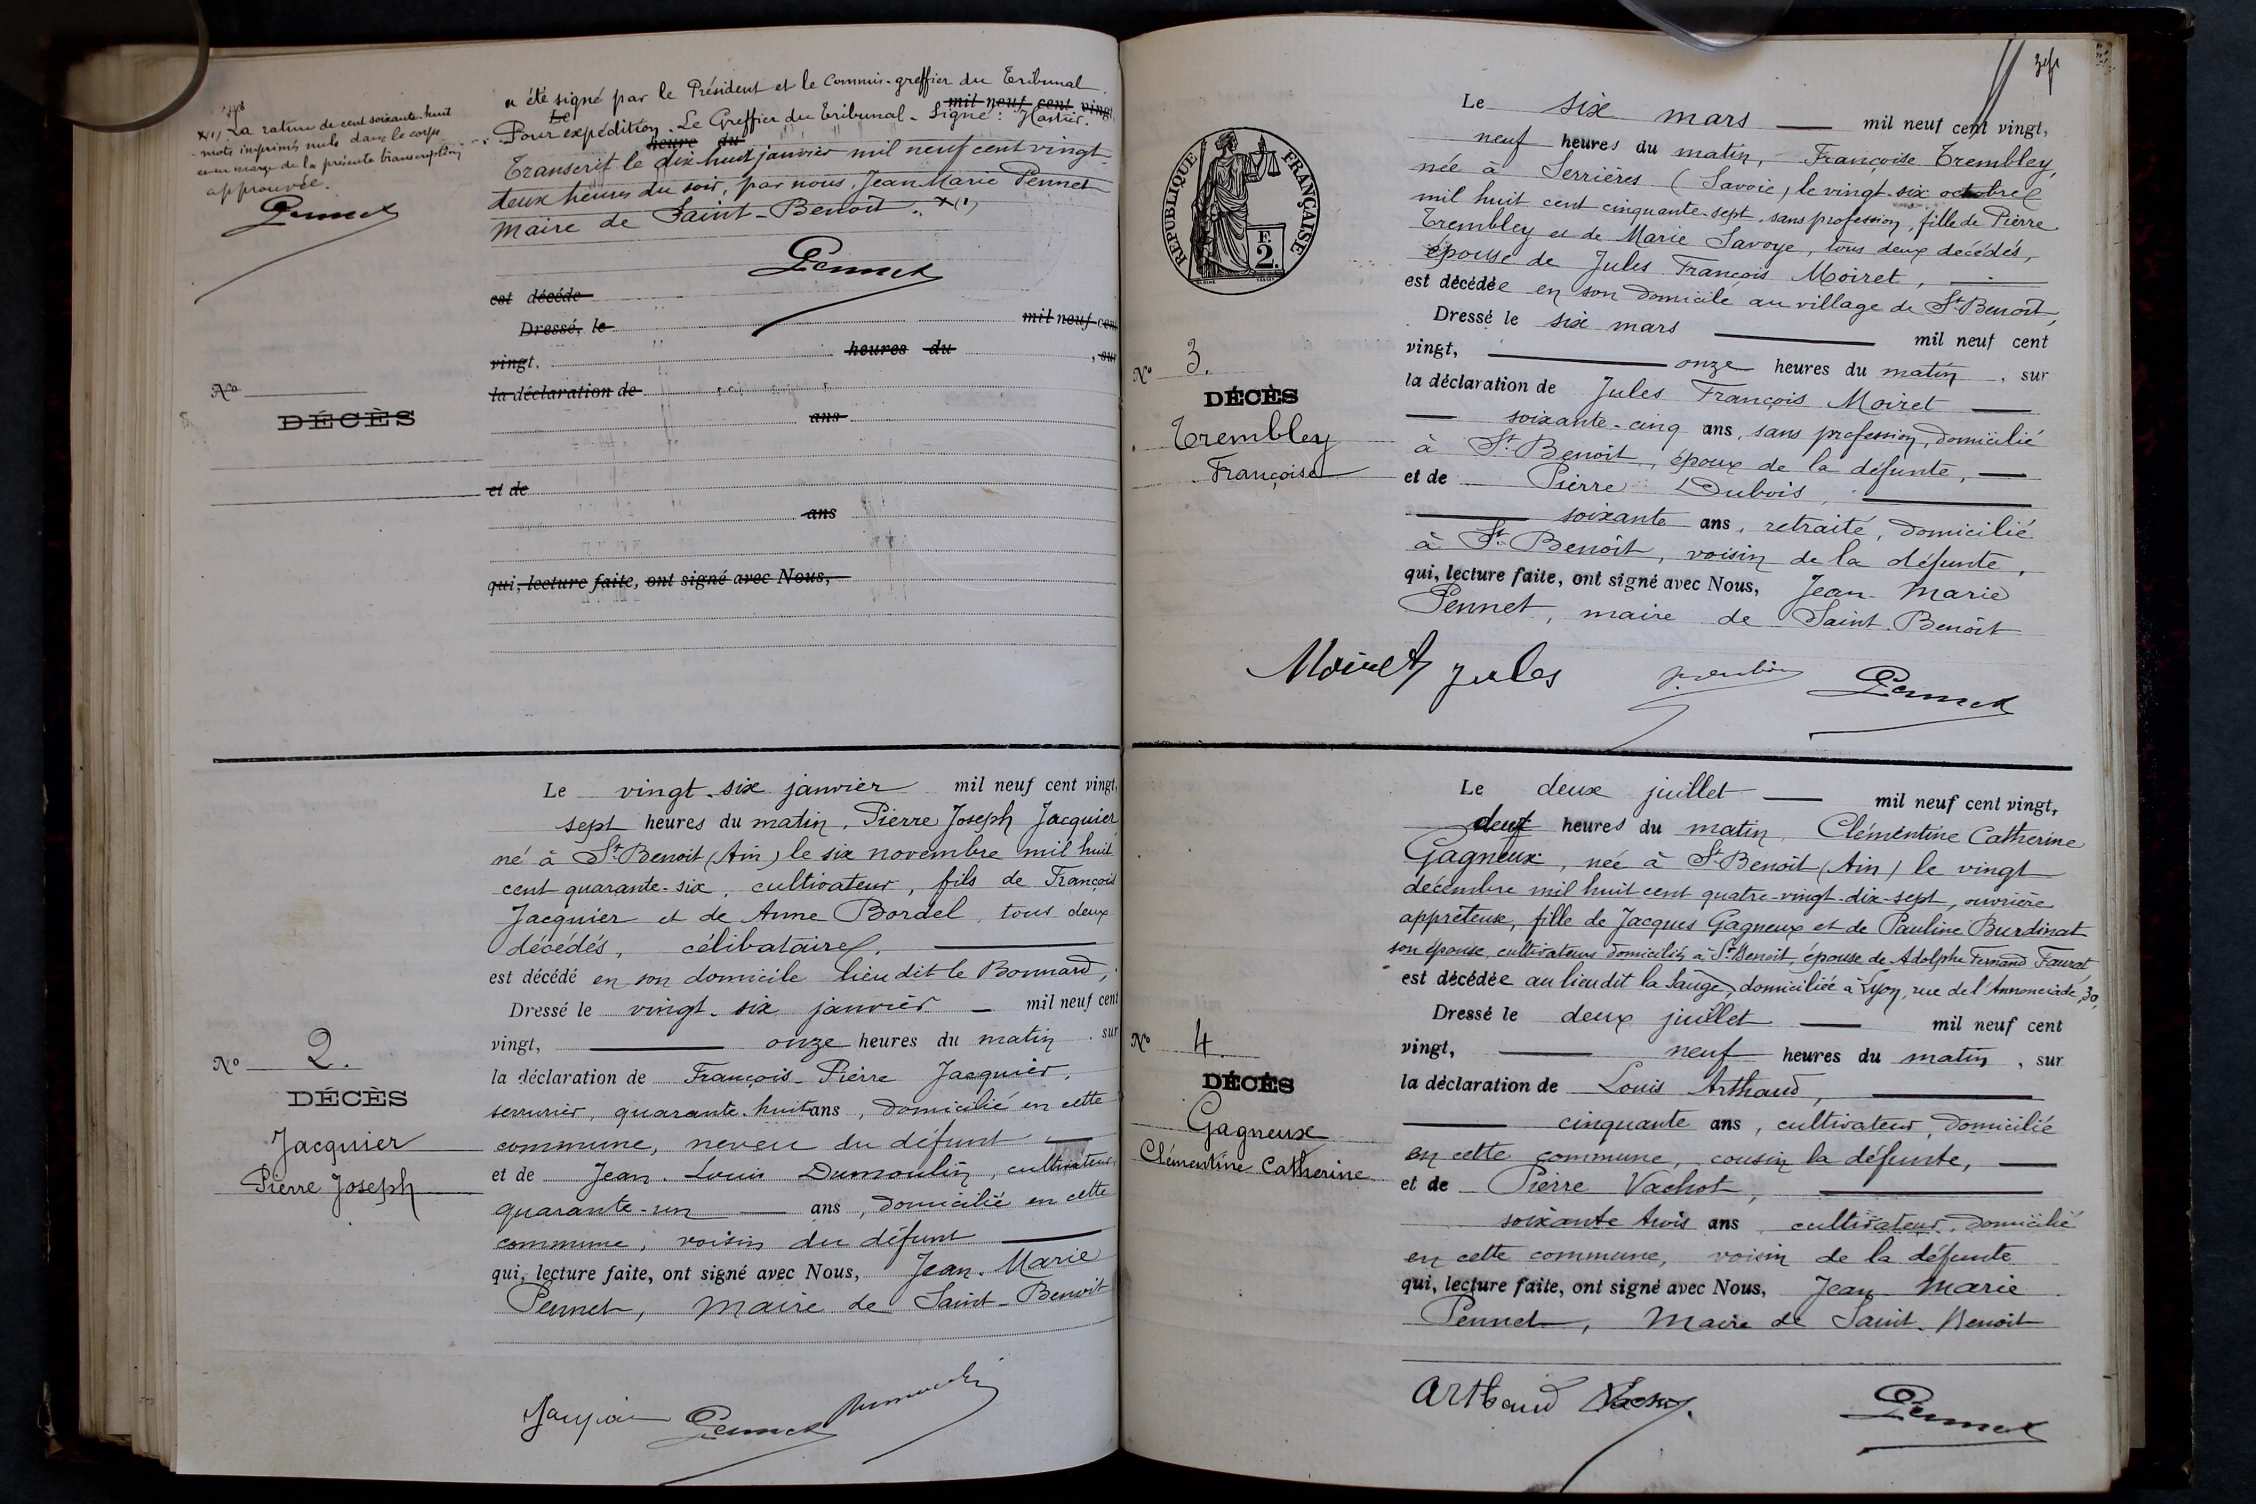 a été signé par le Président et le Commis-greffier du Tribunal
Le mil neuf cent vingt,
Pour expédition. Le Greffier du Tribunal - Signé :
heure du
Transcrit le dix-huit janvier mil neuf cent vingt
deux heures du soir, par nous, Jean Marie Pennet
Maire de Saint-Benoît. x(1)
x(1) La rature de cent soixante-huit
mots imprimés nuls dans le corps
et en marge de la présente transcription
approuvée.
Pennet
Pennet
est décédé
Dressé, le mil neuf cent
vingt. heures du , sur
No
la déclaration de
DÉCÈS
ans
et de
ans
qui, lecture faite, ont signé avec Nous,
Le vingt-six janvier mil neuf cent vingt,
sept heures du matin, Pierre Joseph Jacquier
né à St Benoit (Ain) le six novembre mil huit
cent quarante-six, cultivateur, fils de François
Jacquier et de Anne Bordel, tous deux
décédés, célibataire,
est décédé en son domicile lieu dit le Bonnard,
Dressé le vingt-six janvier mil neuf cent
vingt, onze heures du matin, sur
No 2.
DÉCÈS
Jacquier
Pierre Joseph
la déclaration de François-Pierre Jacquier,
serrurier, quarante-huit ans, domicilié en cette
commune, neveu du défunt
et de Jean-Louis Dumoulin, cultivateur
quarante-un ans, domicilié en cette
commune, voisin du défunt
qui, lecture faite, ont signé avec Nous, Jean-Marie
Pennet, Maire de Saint-Benoit
Pennet Dumoulin
RÉPUBLIQUE FRANÇAISE
F.
2.
Le six mars mil neuf cent vingt,
neuf heures du matin, Françoise Trembley,
née à Serrières (Savoie), le vingt-six octobre
mil huit cent cinquante-sept, sans profession, fille de Pierre
Trembley et de Marie Savoye, tous deux décédés,
épouse de Jules François Moiret,
est décédée en son domicile au village de St Benoît,
Dressé le six mars mil neuf cent
vingt, onze heures du matin, sur
No 3.
DÉCÈS
Trembley
Françoise
la déclaration de Jules François Moiret
soixante-cinq ans, sans profession, domicilié
à St Benoit, époux de la défunte,
et de Pierre Dubois,
soixante ans, retraité, domicilié
à St Benoît, voisin de la défunte,
qui, lecture faite, ont signé avec Nous, Jean-Marie
Pennet, maire de Saint-Benoît
Moiret Jules Pennet
Le deux juillet mil neuf cent vingt,
deux heures du matin, Clémentine Catherine
Gagneux, née à St Benoît (Ain) le vingt
décembre mil huit cent quatre-vingt-dix-sept, ouvrière
apprêteuse, fille de Jacques Gagneux et de Pauline Burdinat
son épouse, cultivateurs domiciliés à St Benoit, épouse de Adolphe Fernand Faurat
est décédée au lieu dit la Sauge, domiciliée à Lyon, rue de l'Annonciade, 30,
Dressé le deux juillet mil neuf cent
vingt, neuf heures du matin, sur
No 4.
DÉCÈS
Gagneux
Clémentine Catherine
la déclaration de Louis Arthaud,
cinquante ans, cultivateur, domicilié
en cette commune, cousin la défunte,
et de Pierre Vachot,
soixante trois ans, cultivateur, domicilié
en cette commune, voisin de la défunte
qui, lecture faite, ont signé avec Nous, Jean Marie
Pennet, Maire de Saint-Benoit
Arthaud Pennet